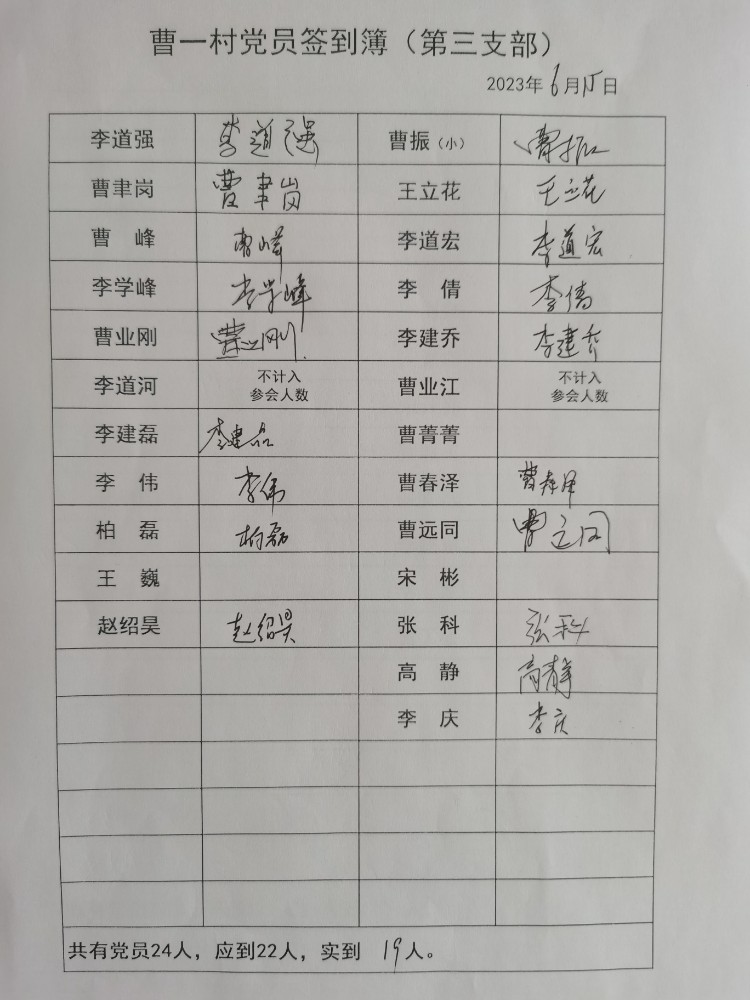 曹一村党员签到簿（第三支部）
2023年6月15日
李道强 李道强 曹振（小） 曹振
曹聿岗 曹聿岗 王立花 王立花
曹 峰 曹峰 李道宏 李道宏
李学峰 李学峰 李 倩 李倩
曹业刚 曹业刚 李建乔 李建乔
李道河 不计入 曹业江 不计入
参会人数 参会人数
李建磊 李建磊 曹菁菁
李 伟 李伟 曹春泽 曹春泽
柏 磊 柏磊 曹远同 曹远同
王 巍 宋 彬
赵绍昊 赵绍昊 张 科 张科
高 静 高静
李 庆 李庆
共有党员24人，应到22人，实到 19人。